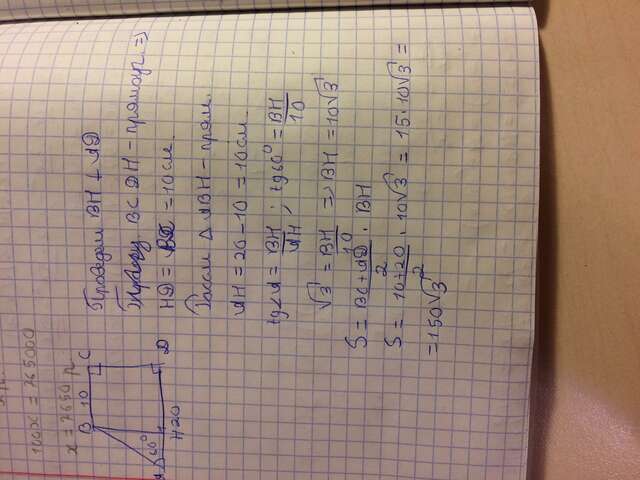 100x = 765000
x = 7650 р
B 10 C
A 60° H 20 D
Проведем BH ⊥ AD
BCDH - прямоуг. =>
HD = BC = 10 см.
Рассм △ ABH - прям.
AH = 20 - 10 = 10 см.
tg∠A = BH/AH ; tg60° = BH/10
√3 = BH/10 => BH = 10√3
S = BC + AD/2 · BH
S = 10+20/2 · 10√3 = 15 · 10√3 =
= 150√3